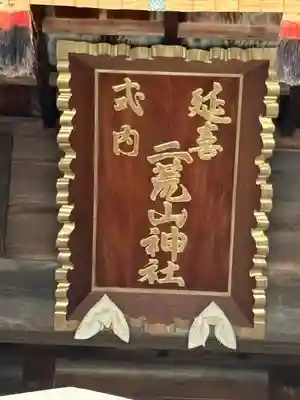 延喜
式内
二荒山神社